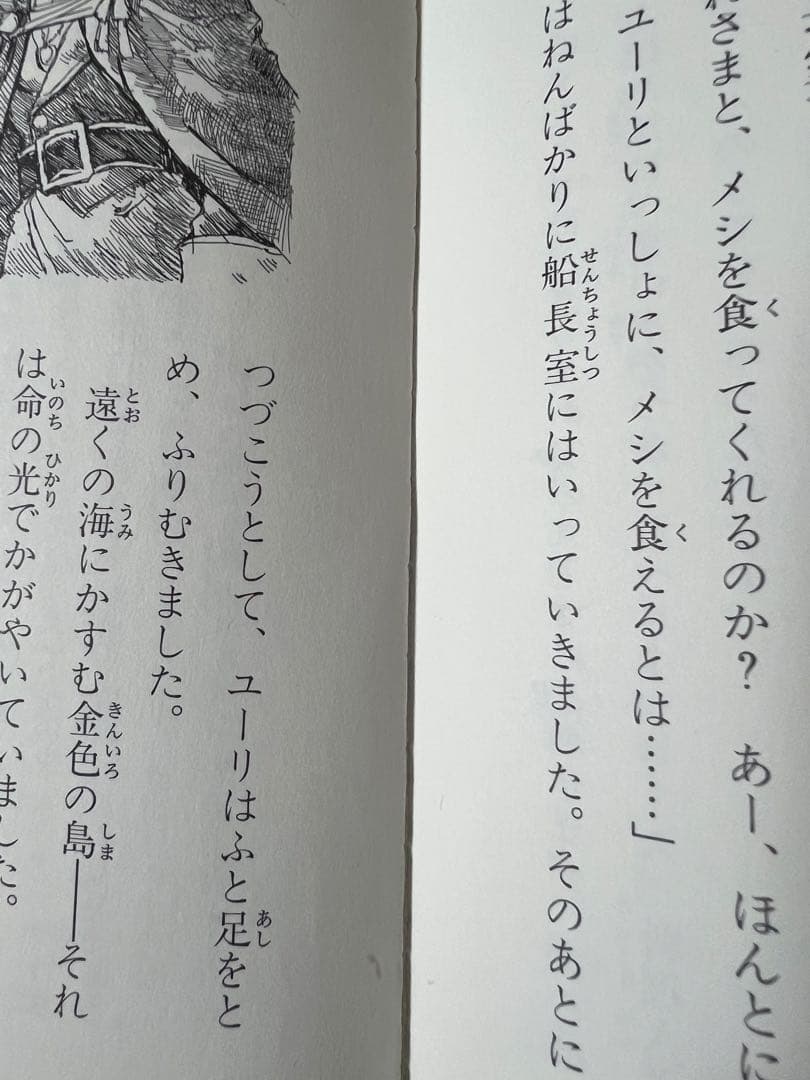 れさまと、メシを食ってくれるのか？　あー、ほんとに
ユーリといっしょに、メシを食えるとは……」
はねんばかりに船長室にはいっていきました。そのあとに
つづこうとして、ユーリはふと足をと
め、ふりむきました。
遠くの海にかすむ金色の島――それ
は命の光でかがやいていました。